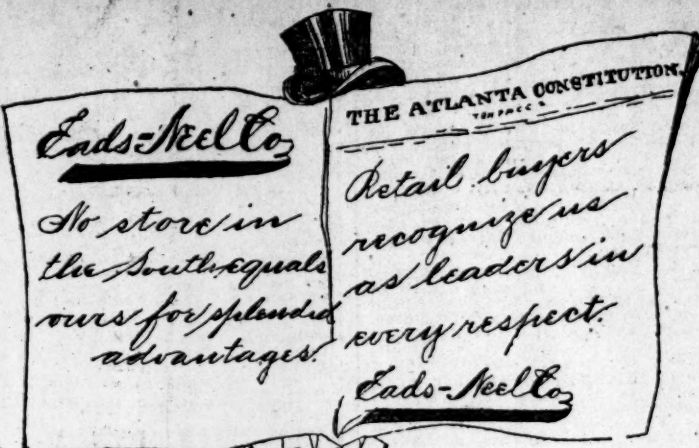 Eads-Neel Co.
No store in
the South equals
ours for splendid
advantages.
THE ATLANTA CONSTITUTION.
Retail buyers
recognize us
as leaders in
every respect.
Eads-Neel Co.